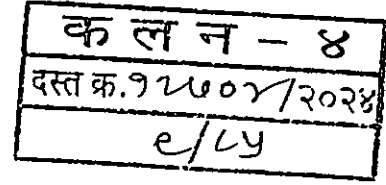 क ल न - ४
दस्त क्र.१८७०४/२०२४
९/८५